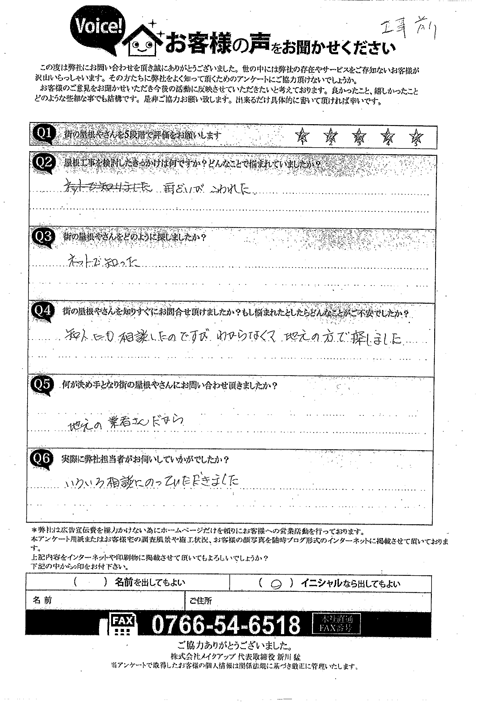 Voice!
工事前
お客様の声をお聞かせください
この度は弊社にお問い合わせを頂き誠にありがとうございます。世の中には弊社の存在やサービスをご存知ないお客様が
沢山いらっしゃいます。その方たちに弊社をよく知って頂くためのアンケートにご協力頂けないでしょうか。
お客様のご意見をお聞かせいただき今後の活動に反映させていただきたいと考えております。良かったこと、嬉しかったこと
どのような些細な事でも結構です。是非ご協力お願い致します。出来るだけ具体的に書いて頂ければ幸いです。
Q1 街の屋根やさんを5段階で評価をお願いします ☆ ☆ ☆ ☆ ☆
Q2 屋根工事を検討したきっかけは何ですか?どんなことで悩まれていましたか?
ネットで知りました 雨どいが こわれた。
Q3 街の屋根やさんをどのように探しましたか?
ネットで知った
Q4 街の屋根やさんを知りすぐにお問合せ頂けましたか?もし悩まれたとしたらどんなことがご不安でしたか?
知人に相談したのですが わからなくて 地元の方で探しました
Q5 何が決め手となり街の屋根やさんにお問い合わせ頂きましたか?
地元の業者さんだから
Q6 実際に弊社担当者がお伺いしていかがでしたか?
いろいろ相談にのっていただきました
*弊社は広告宣伝費を極力かけない為にホームページだけを頼りにお客様への営業活動を行っております。
本アンケート用紙またはお客様宅の調査風景や施工状況、お客様の顔写真を随時ブログ形式のインターネットに掲載させて頂いておりま
す。
上記内容をインターネットや印刷物に掲載させて頂いてもよろしいでしょうか?
下記の中から○印をお付け下さい。
( ) 名前を出してもよい ( ○ ) イニシャルなら出してもよい
名前 ご住所
FAX 0766-54-6518 本社直通 FAX番号
ご協力ありがとうございました。
株式会社メイクアップ 代表取締役 新川 猛
当アンケートで取得したお客様の個人情報は関係法規に基づき厳正に管理いたします。